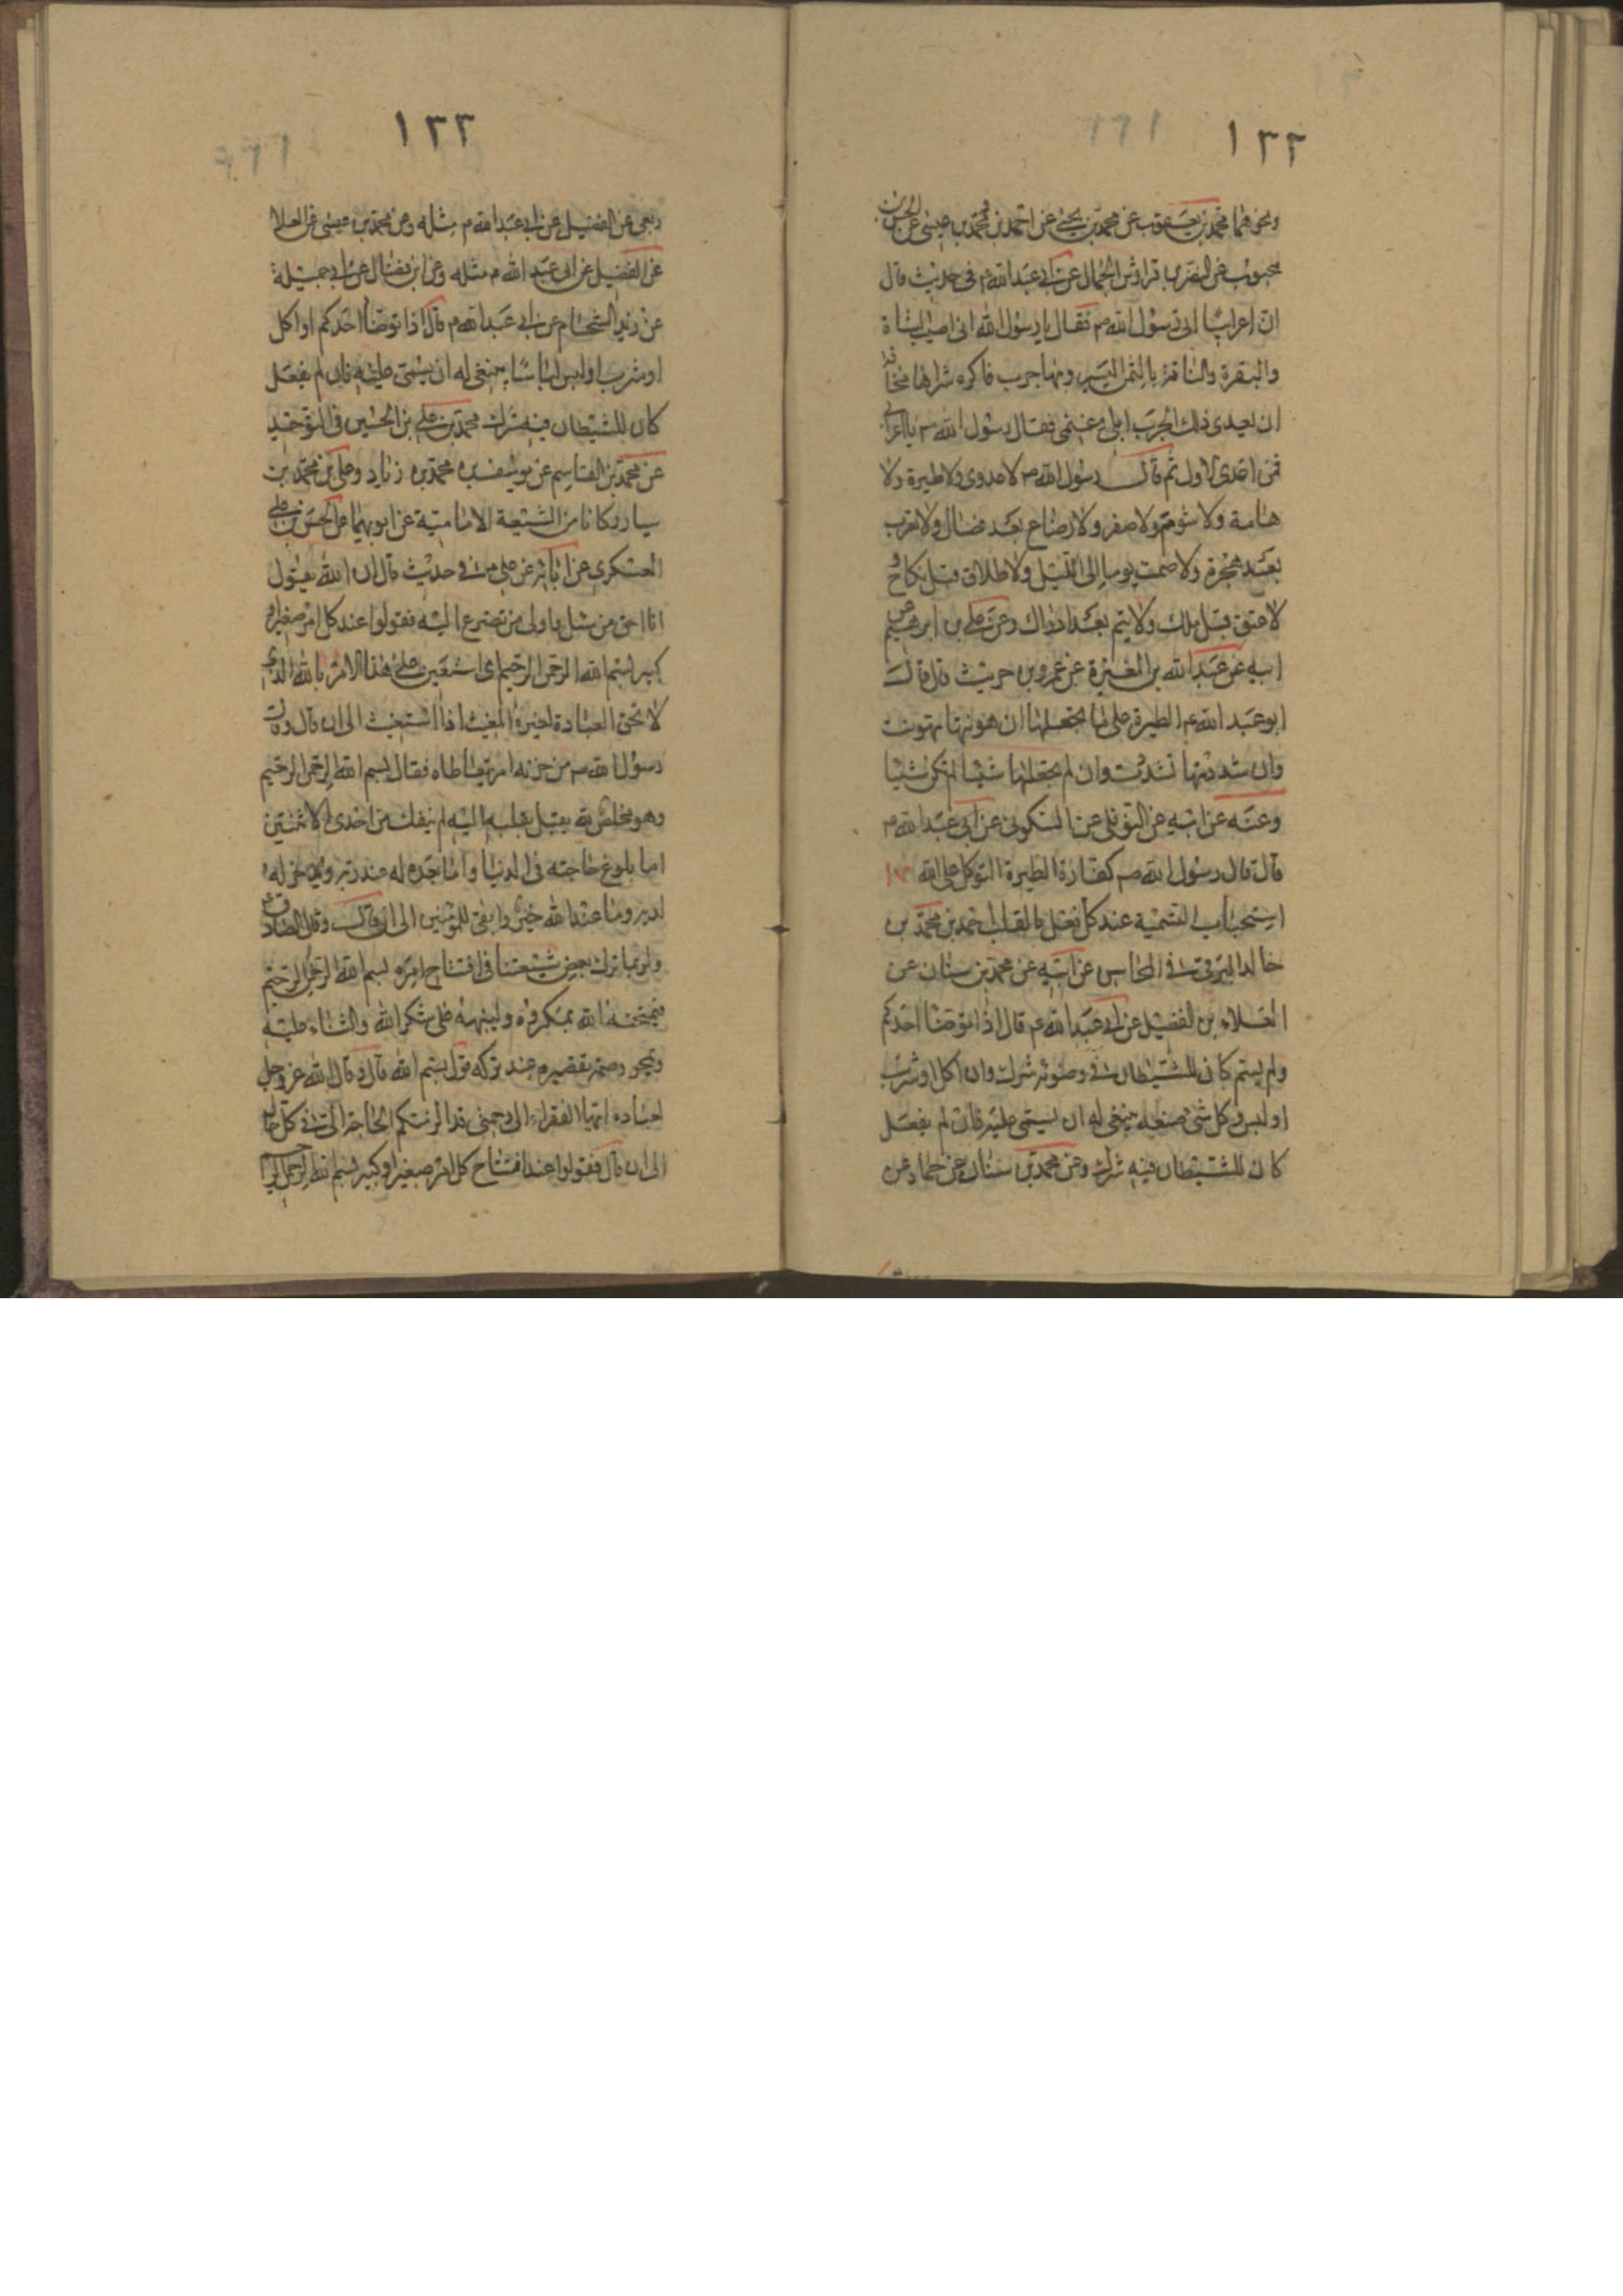 ١٣٢
ونحوهما محمد بن يعقوب عن محمد بن يحيى عن احمد بن محمد بن عيسى عن الحسن بن
محبوب عن النضر بن قرواش الجمال عن ابي عبد الله ع في حديث قال
ان اعرابيا اتى رسول الله ص فقال يا رسول الله انى اصيب الشاة
والبقرة والناقة بالثمن اليسير وبها جرب فاكره شراها مخافة
ان يعدى ذلك الجرب ابلى وغنمى فقال رسول الله ص يا اعرابى
فمن اعدى الاول ثم قال رسول الله ص لا عدوى ولا طيرة ولا
هامة ولا شوم ولا صفر ولا رضاع بعد فصال ولا تعرب
بعد هجرة ولا صمت يوما الى الليل ولا طلاق قبل نكاح و
لا عتق قبل ملك ولا يتم بعد ادراك وعن على بن ابرهيم عن
ابيه عن عبد الله بن المغيرة عن عمرو بن حريث قال قال
ابو عبد الله ع الطيرة على ما تجعلها ان هونتها تهونت
وان شددتها تشددت وان لم تجعلها شيئا لم تكن شيئا
وعنه عن ابيه عن النوفلى عن السكونى عن ابى عبد الله ع
قال قال رسول الله ص كفارة الطيرة التوكل على الله
استحباب التسمية عند كل فعل بالقلب احمد بن محمد بن
خالد البرقى في المحاسن عن ابيه عن محمد بن سنان عن
العلاء بن الفضيل عن ابي عبد الله ع قال اذا توضا احدكم
ولم يسم كان للشيطان في وضوئه شرك وان اكل او شرب
او لبس وكل شئ صنعه ينبغى له ان يسمى عليه فان لم يفعل
كان للشيطان فيه شرك وعن محمد بن سنان عن حماد عن
١٣٣
ربعى عن الفضيل عن ابي عبد الله ع مثله وعن محمد بن عيسى عن العلا
عن الفضيل عن ابى عبد الله ع مثله وعن ابن فضال عن ابي جميلة
عن زيد الشحام عن ابي عبد الله ع قال اذا توضا احدكم او اكل
او شرب او لبس لباسا ينبغى له ان يسمى عليه فان لم يفعل
كان للشيطان فيه شرك محمد بن على بن الحسين فى التوحيد
عن محمد بن القاسم عن يوسف بن محمد بن زياد وعلى بن محمد بن
سيار وكانا من الشيعة الامامية عن ابويهما عن الحسن بن على
العسكرى عن ابائه عن على بن في حديث قال ان الله يقول
انا احق من سئل واولى من تضرع اليه فقولوا عند كل امر صغير او
كبير بسم الله الرحمن الرحيم اى استعين على هذا الامر بالله الذى
لا تحق العبادة لغيره المغيث اذا استغيث الى ان قال وقال
رسول الله ص من حزنه امر تعاطاه فقال بسم الله الرحمن الرحيم
وهو مخلص لله يقبل بقلبه اليه لم ينفك من احدى اثنتين
اما بلوغ حاجته فى الدنيا واما تعد له عند ربه وتدخر له
لديه وما عند الله خير وابقى للمؤمنين الى ان قال وقال الصادق ع
ولربما ترك بعض شيعتنا فى افتتاح امره بسم الله الرحمن الرحيم
فيمتحنه الله بمكروه ولينبهه على شكر الله والثناء عليه
ويمحو وصمة تقصيره عند تركه قول بسم الله قال وقال الله عز وجل
لعباده ايها الفقراء الى رحمتى قد الزمتكم الحاجة الى في كل حال
الى ان قال فقولوا عند افتتاح كل امر صغير او كبير بسم الله الرحمن الرحيم